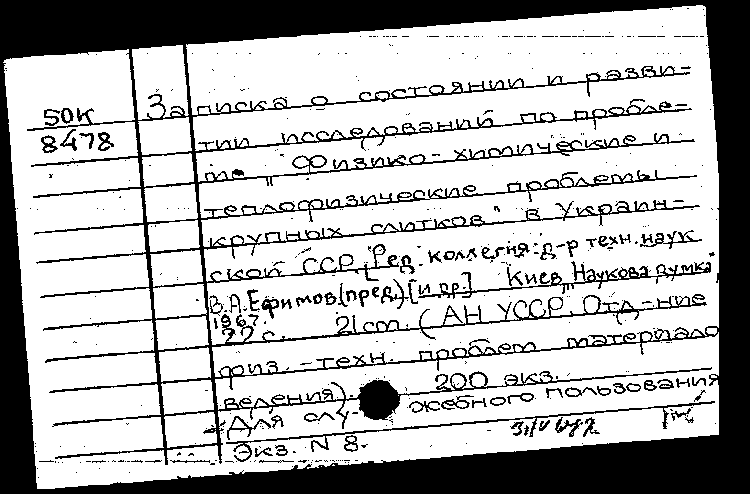 50К
8478
Записка о состоянии и разви=
тии исследований по пробле=
ме „Физико-химические и
теплофизические проблемы
крупных слитков" в Украин=
ской ССР. [Ред. коллегия: д-р техн. наук
В.А. Ефимов (пред.) [и др.] Киев, „Наукова думка",
1967.
22 с. 21 cm. (АН УССР. Отд-ние
физ.-техн. проблем материало
ведения). 200 экз.
Для служебного пользования
Экз. N 8.